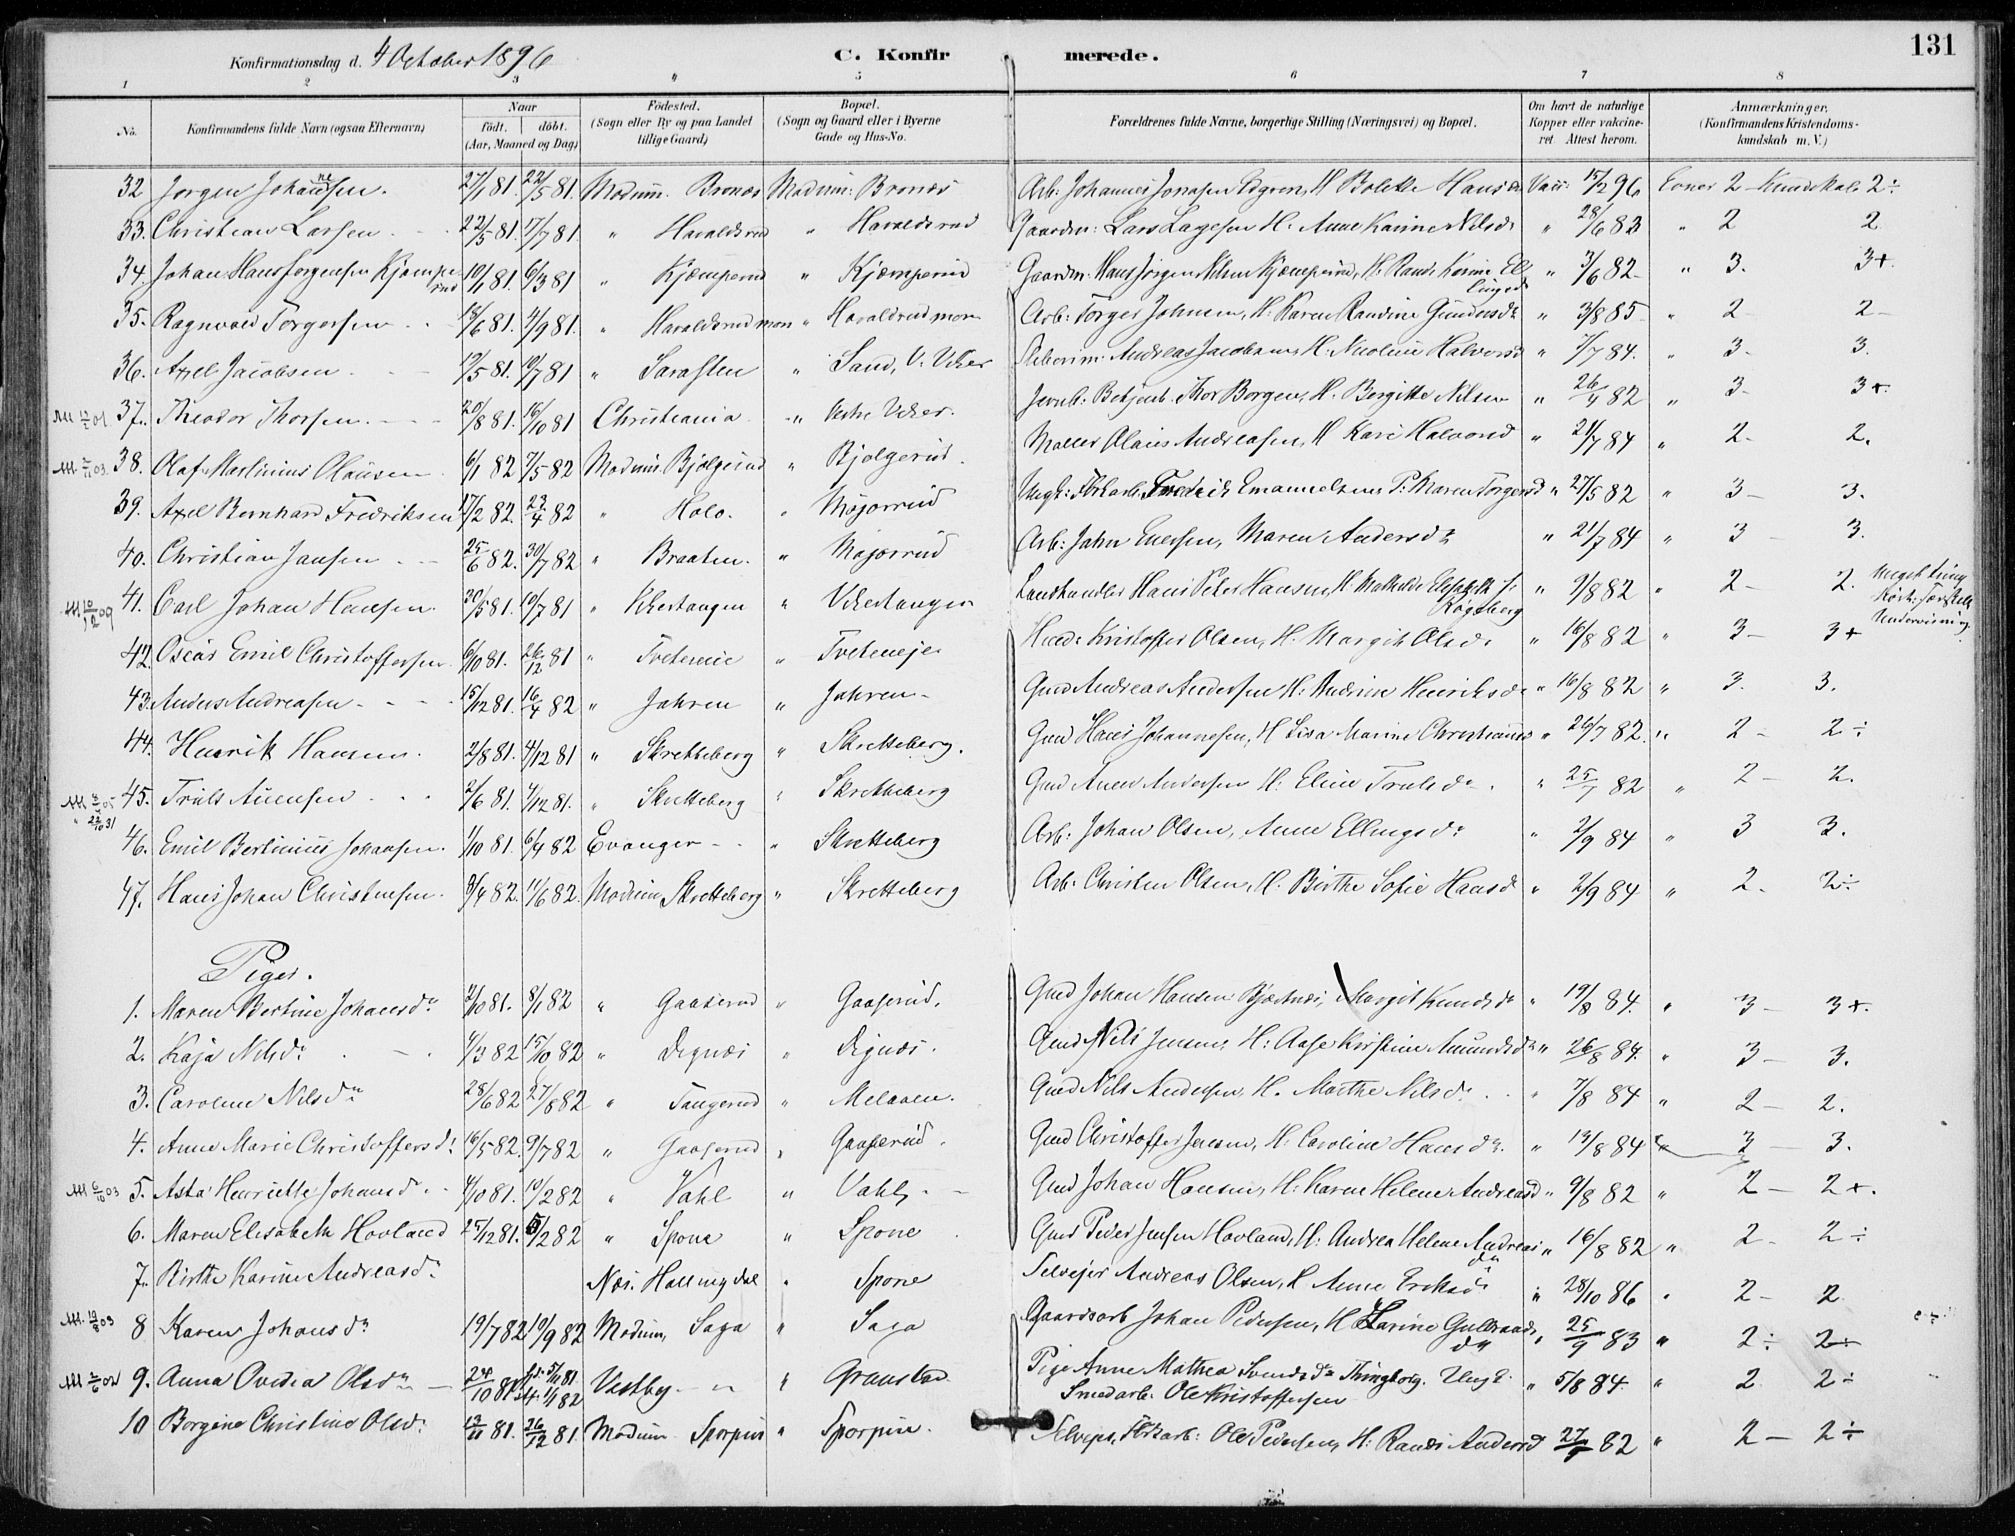 131
Konfirmationsdag d. 4 October 1896
C. Konfirmerede.
1 2 3 4 5 6 7 8
No. Konfirmandens fulde Navn (ogsaa Efternavn) Naar födt. döbt. (Aar, Maaned og Dag) Födested. (Sogn eller By og paa Landet tillige Gaard) Bopæl. (Sogn og Gaard eller i Byerne Gade og Hus-No. Forældrenes fulde Navne, borgerlige Stilling (Næringsvei) og Bopæl. Om havt de naturlige Kopper eller vakcineret. Attest herom. Anmærkninger. (Konfirmandens Kristendomskundskab m. V.)
32 Jørgen Johannesen. 27/1 81. 22/5 81. Modum. Bronæs Modum: Bronæs Arb: Johannes Jonasen H. Bolette Hansd. Vacc: 15/2 96 Evner 2 - Kundskab 2÷
33. Christian Larsen 22/5 81. 17/7 81. " Haraldsrud " Haraldsrud Gaardm: Lars Lagesen H. Anne Karine Nilsd. " 28/6 83 " 2 2
34. Johan Hans Jørgensen Kjæmperud 10/1 81. 6/3 81 " Kjæmperud " Kjæmperud Gaardm. Hans Jørgen Nilsen Kjæmperud, H. Randi Karine Ellingsd. " 3/6 82 " 3. 3+.
35. Ragnvald Torgersen 18/6 81. 4/9 81. " Haraldsrudmon " Haraldrudmon Arb: Torger Johnsen, H. Karen Randine Gundersd. " 3/8 85 " 2 - 2 -
36. Axel Jacobsen 12/5 81. 10/7 81 " Sarasten " Sand, V: Viker Andreas Jacobsen, H. Nicoline Halvorsd " 7/7 84. " 3. 3.
M 12/1 01 37. Theodor Thorsen. 20/8 81. 16/10 81 Christiania " Vestre Viker. Jernb. Betjent. Thor Borgen, H. Bergitte Nilsen " 26/4 82 " 3 - 3+.
M. 2/11 03. 38. Olaf Martinius Olausen 6/1 82 7/5 82 Modum. Bjølgerud " Bjølgerud. Møller Olaus Andreasen, H Kari Halvorsd " 21/7 84 " 2 - 2.
39. Axel Bernhard Fredriksen 17/2 82. 23/4 82 " Holo. " Møjorrud Ungk: Fbrkarb. Fredrik Emanuelsen P: Maren Torgersd " 27/5 82 " 3 - 3.
40. Christian Jansen 25/6 82. 30/7 82 " Braaten. " Møjorrud Arb: Jahn Enersen, Maren Andersdr. " 21/7 84 " 3 - 3.
M 10/12 09 41. Carl Johan Hansen 30/5 81. 10/7 81 " Vikertangen " Vikertangen Landhandler Hans Peter Hansen, H. Mathilde Elisabeth f. Røgeberg " 9/8 82 " 2 - 2.
42. Oscar Emil Christoffersen 6/10 81. 26/12 81 " Tveteneie " Tveteneje Kristoffer Olsen, H. Margit Olsd. " 16/8 82 " 3 - 3+
43. Anders Andreasen 15/12 81. 16/4 82 " Jahren " Jahren - Gmd Andreas Andersen H. Andrine Henriksd. " 16/8 82 " 3. 3.
44. Henrik Hansen. 2/8 81. 4/12 81 " Skretteberg " Skretteberg. Gmd Hans Johannesen, H Lisa Marine Christiansd " 26/7 82. " 2 - 2÷
M 4/2 05 " 22/10 31 45. Truls Auensen 2/6 81. 4/12 81. " Skretteberg " Skretteberg Gmd Auen Andersen H. Eline Trulsd. " 25/7 82 " 2 - 2.
46. Emil Bertinius Johansen. 1/10 81. 6/4 82 Evanger - " Skretteberg Arb: Johan Olsen, Anne Ellingsd. " 2/9 84 " 3 3.
47. Hans Johan Christensen. 8/4 82. 11/6 82. Modum, Skretteberg " Skretteberg Arb: Christen Olsen, H. Birthe Sofie Hansd " 2/9 84 " 2. 2÷
Piger.
1. Maren Bertine Johansdr. 2/10 81. 8/1 82 " Gaaserud " Gaaserud. Gmd Johan Hansen, Margit Knudsd " 19/8 84. " 3 - 3+.
2. Kaja Nilsd. 4/3 82 15/10 82 " Dignæs " Dignæs. Gmd Nils Jensen, H: Aase Kirstine Amundsd " 26/8 84. " 3 - 3.
3. Caroline Nilsdr. 28/6 82 27/8 82 " Tangerud " Melaaen. Gmd Nils Andersen, H. Marthe Nilsd. " 7/8 84 " 2 - 2.
4. Anne Marie Christoffersd. 16/5 82. 9/7 82 " Gaaserud " Gaaserud. Gmd Christoffer Jensen, H. Caroline Hansdr. " 19/8 84 " 3 - 3.
M 6/10 03 5. Asta Henriette Johansd. 4/10 81. 19/2 82 " Vahl " Vahl. Gmd Johan Hansen, H. Karen Helene Andreasd " 9/8 82 " 2 - 2+.
6. Maren Elisabeth Hovland 25/12 81. /2 82 " Spone " Spone Gmd Peder Jensen Hovland, H. Andrea Helene Andreasdr " 16/8 82 " 2 - 2÷
7. Birthe Karine Andreasd. Næs. Hallingdal " Spone Selvejer Andreas Olsen, H Anne Eriksd. " 28/10 86 " 2 - 2
M. 19/8 03 8 Karen Johansdr 19/7 82 10/9 82 Modum, Saga " Saga Gaardsarb Johan Pedersen, H Karine Gulbrandsdr " 25/9 83 " 2÷ 2÷
M 2/6 02 9. Anna Ovidia Olsdr. 24/10 81. Vestby - " Granstad Pige Anne Mathea Svendsdr Thingborg. Ungk. Smedarb. Ole Kristoffersen " 5/8 84. " 2 2÷
10 Borgine Christine Olsd. 13/11 81. 26/12 81. Modum Sporpin " Sporpin. Selvejer, Fbrkarb: Ole Pedersen, H. Randi Andersd 27/7 82 " 2 - 2÷